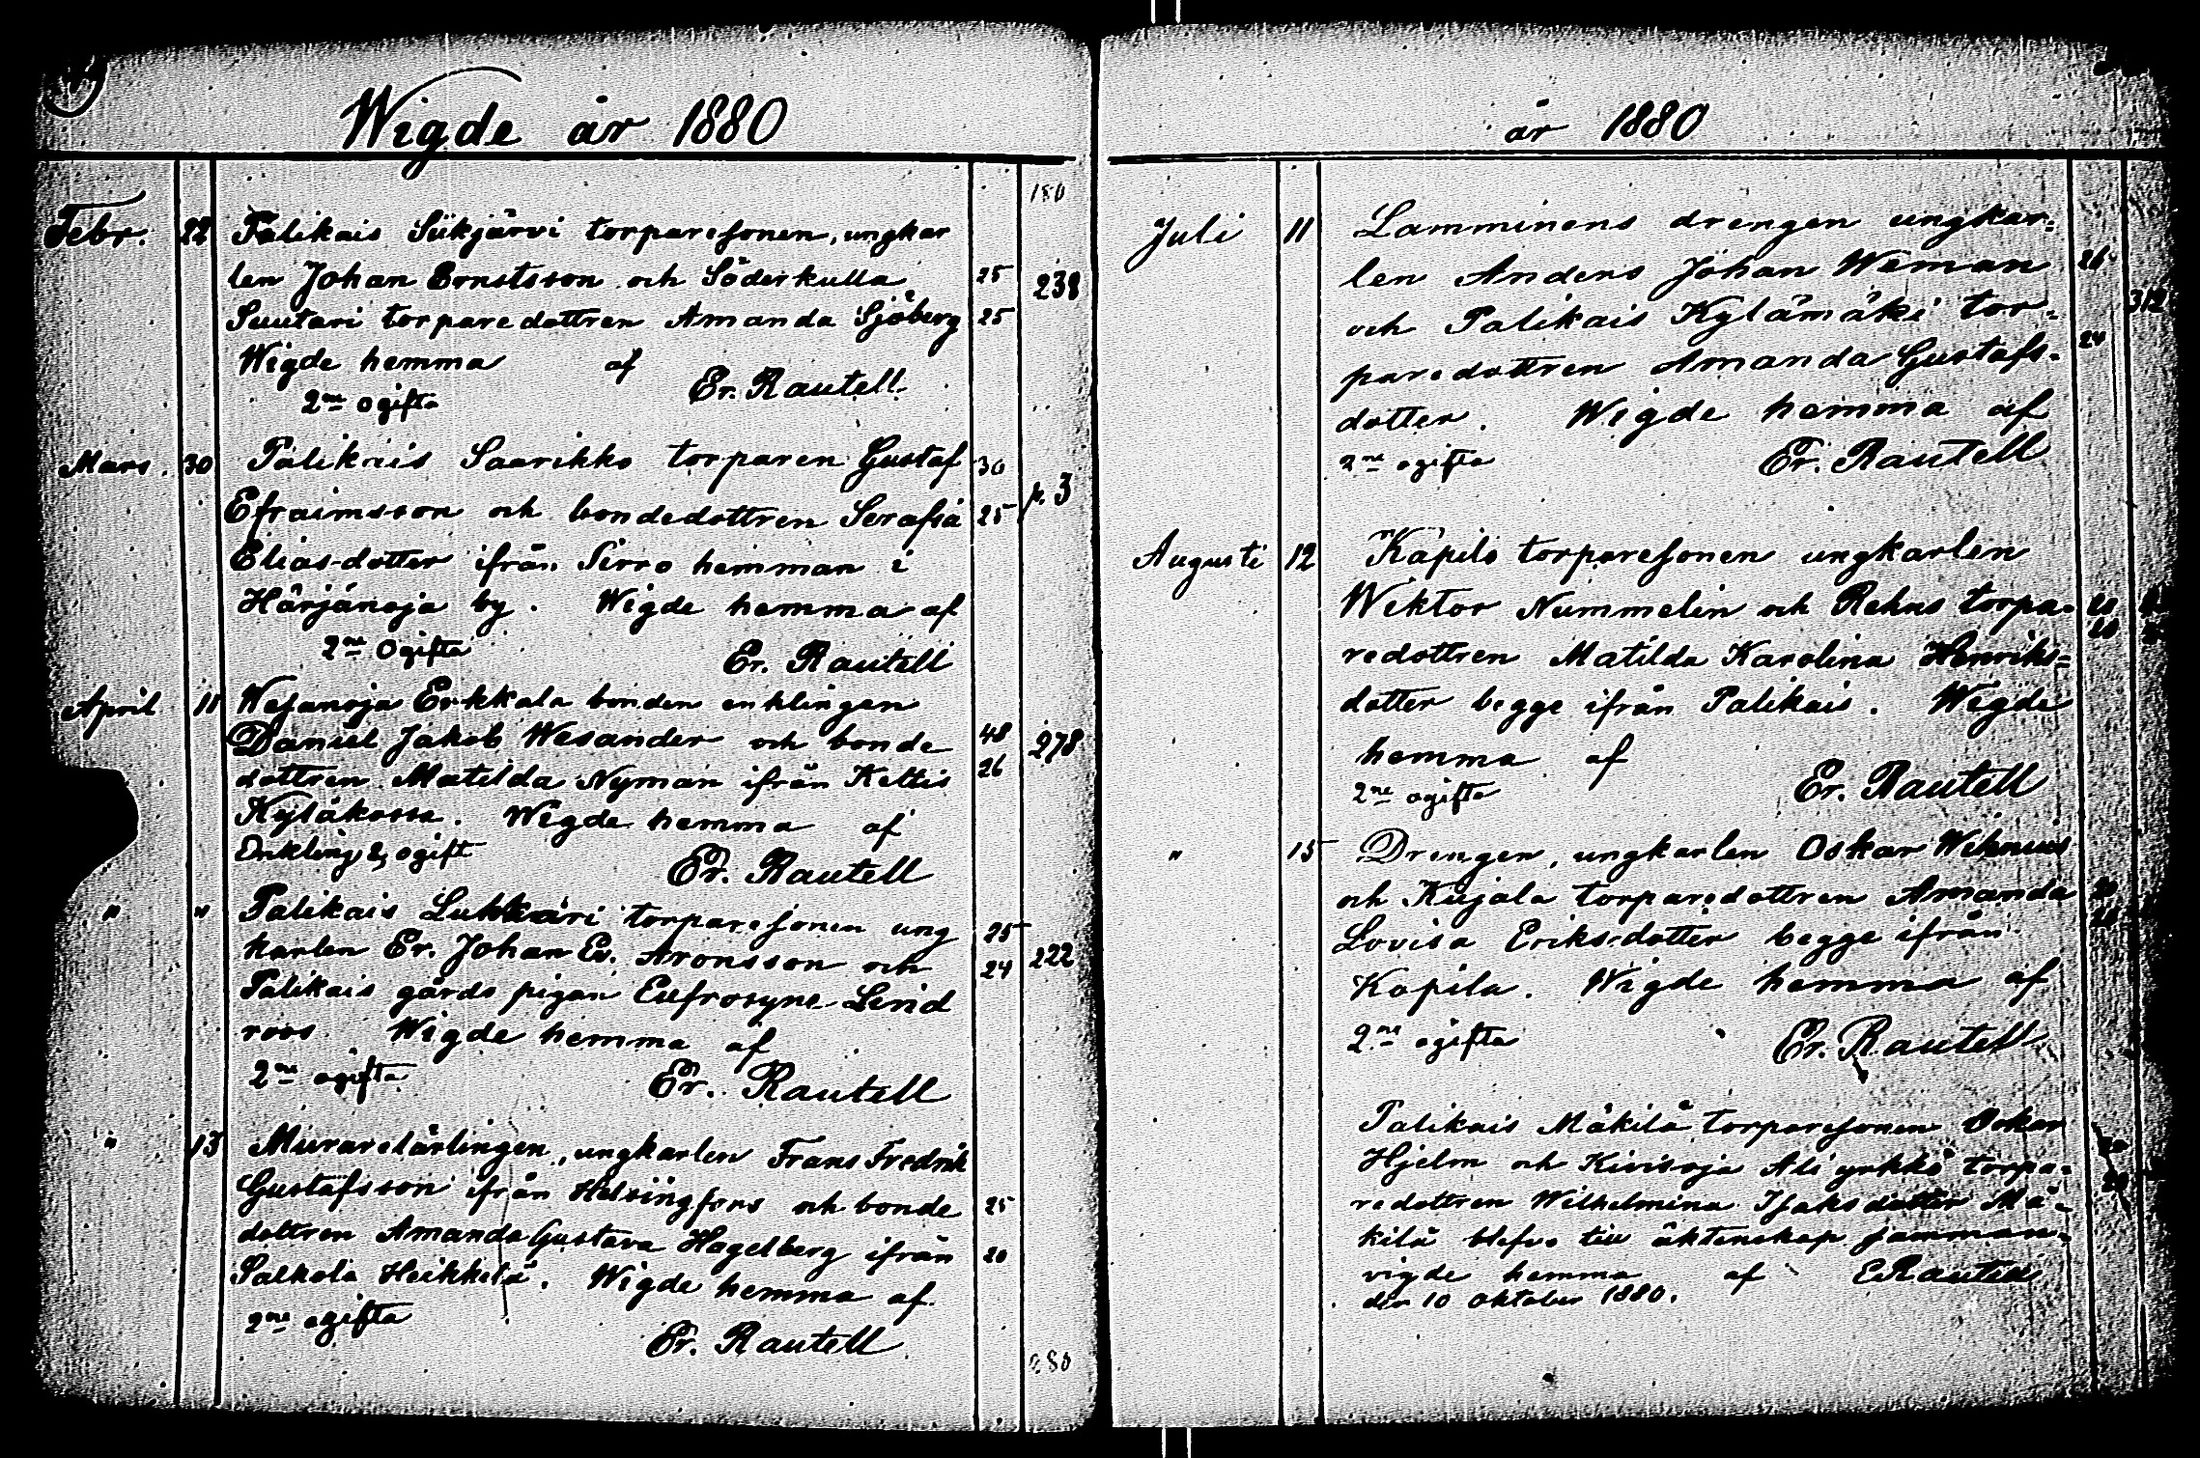 Wigde år 1880
150
Febr. 22 Palikais Siikjärvi torparesonen, ungkar
len Johan Ernstsson och Söderkulla 25 238
Suutari torparedottren Amanda Sjöberg 25
Wigde hemma af
Er. Rautell
2ne ogifta
Mars. 30 Palikais Saarikko torparen Gustaf 30
Efraimsson och bondedottren Serafia 25 p. 3
Elias-dotter ifrån Sirro hemman i
Härjänoja by. Wigde hemma af
2ne Ogifta
Er. Rautell
April 11 Wesanoja Erkkala bonden enklingen
Daniel Jakob Wesander och bonde 48 278
dottren Matilda Nyman ifrån Keltis 26
Kyläkossa. Wigde hemma af
Enkling & ogift
Er. Rautell
" " Palikais Lukkari torparesonen ung
karlen Er. Johan Ev. Aronsson och 25 222
Palikais gårds pigan Eufrosyne Lind 24
roos. Wigde hemma af
2ne ogifta
Er. Rautell
" 13 Murarelärlingen, ungkarlen Frans Fredrik
Gustafsson ifrån Helsingfors och bonde 25
dottren Amanda Gustava Hagelberg ifrån 20
Salkola Heikkilä. Wigde hemma af
2ne ogifta
Er. Rautell
280
år 1880
Juli 11 Lamminens drengen ungkar=
len Anders Johan Weman 26
och Palikais Kylämäki tor= 312
paredottren Amanda Gustafs- 24
dotter. Wigde hemma af
2ne ogifta Er. Rautell
Augusti 12 Kapilo torparesonen ungkarlen
Wiktor Nummelin och Rehns torpa=
redottren Matilda Karolina Henriks=
dotter begge ifrån Palikais. Wigde
hemma af
2ne ogifta Er. Rautell
" 15 Drengen, ungkarlen Oskar Wehnius
och Kujala torparedottren Amanda
Lovisa Eriksdotter begge ifrån
Kapila. Wigde hemma af
2ne ogifta Er. Rautell
Palikais Mäkilä torparesonen Oskar
Hjelm och Kivisoja Ali yrkkö torpa=
redottren Wilhelmina Isaksdotter Mä=
kilä blefvo till äktenskap samman=
vigde hemma af E Rautell
den 10 Oktober 1880.